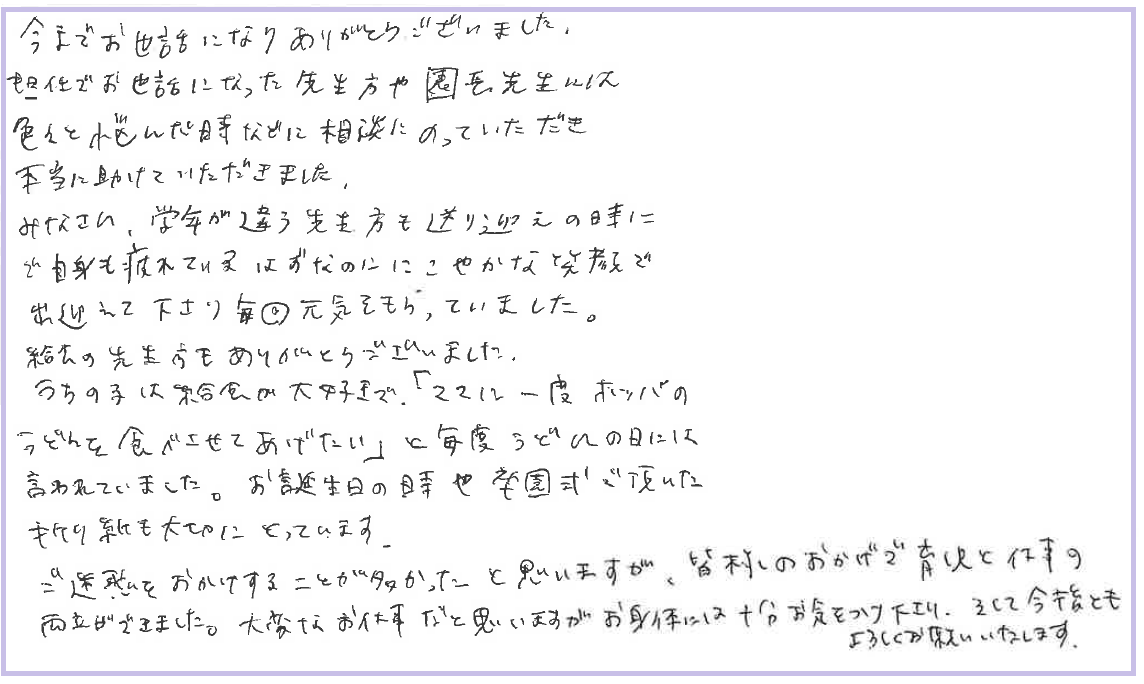 今までお世話になりありがとうございました。
担任でお世話になった先生方や園長先生には
色々と悩んだ時などに相談にのっていただき
本当に助けていただきました。
みなさい、学年が違う先生方も送り迎えの時に
ご自身も疲れているはずなのににこやかな笑顔で
出迎えて下さり毎回元気をもらっていました。
給食の先生方もありがとうございました。
うちの子は給食が大好きで、「ママに一度ポッパの
うどんを食べさせてあげたい」と毎度うどんの日には
言われていました。お誕生日の時や卒園式で頂いた
折り紙も大切にとっています。
ご迷惑をおかけすることが多かったと思いますが、皆様のおかげで育児と仕事の
両立ができました。大変なお仕事だと思いますがお身体には十分お気をつけ下さり、そして今後とも
よろしくお願いいたします。